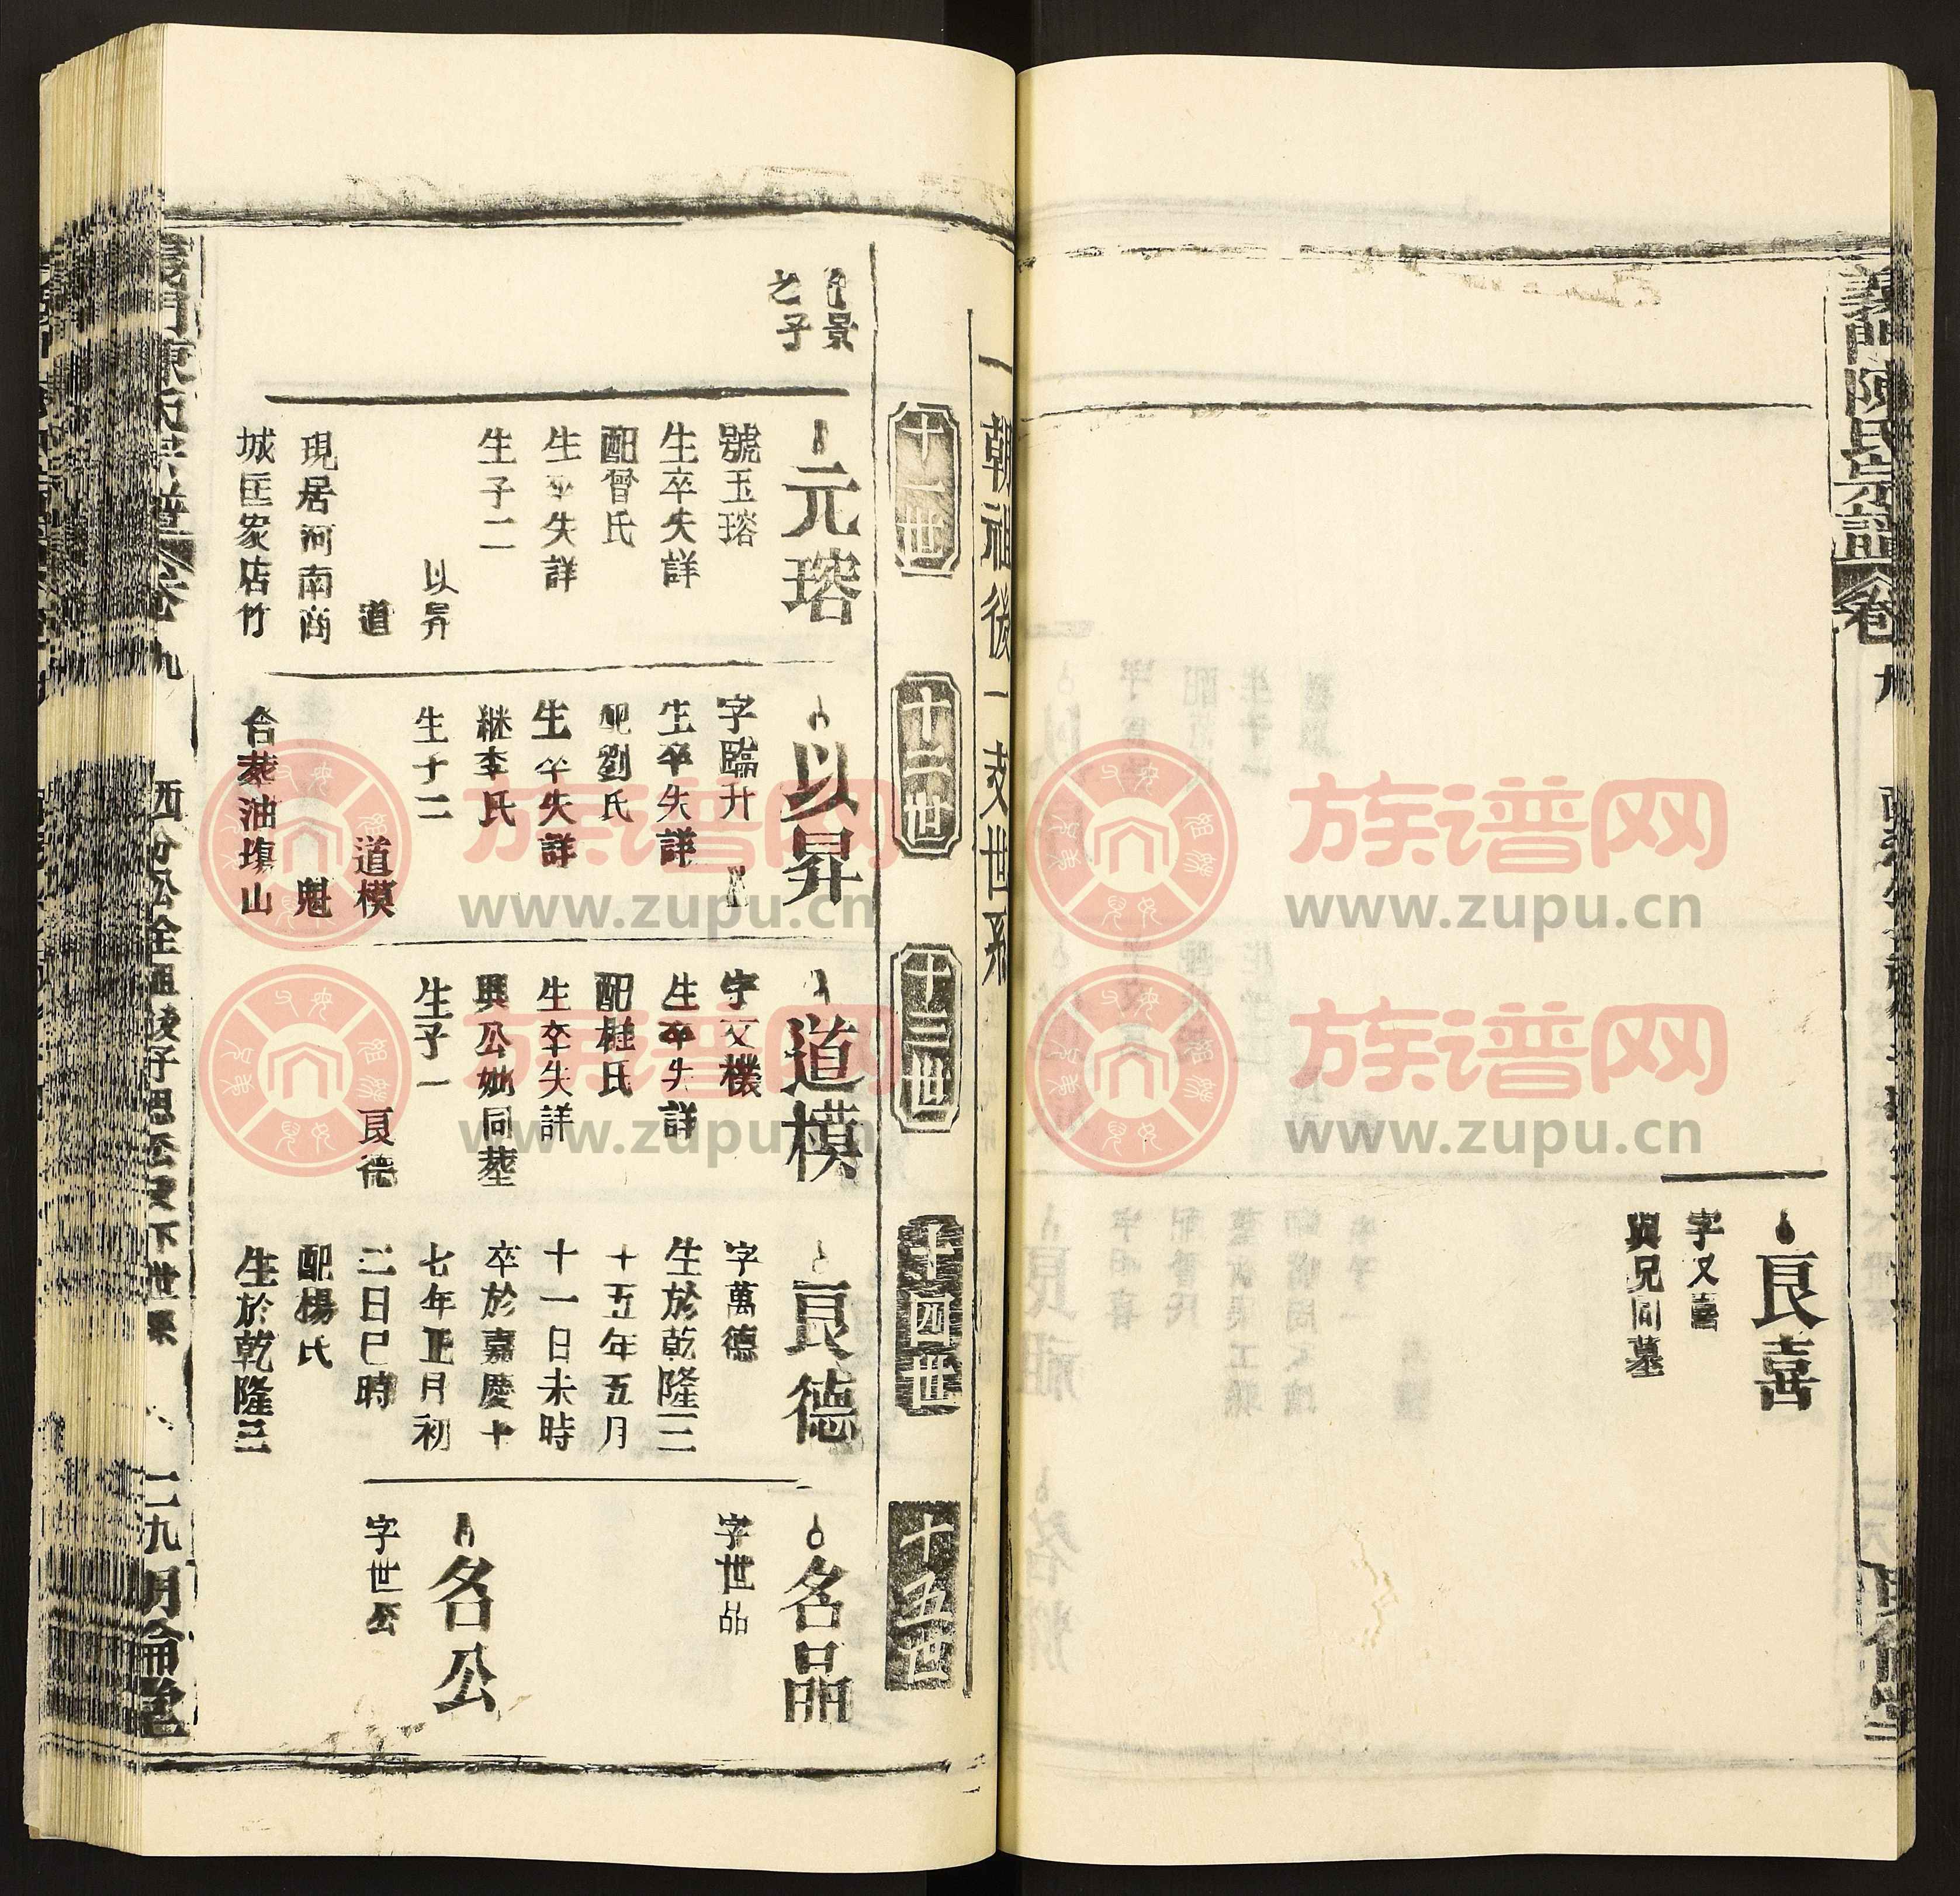 義門陳氏宗譜
卷九
良喜
字又喜
與兄同墓
一朝祖後一支世系
十一世
十二世
十三世
十四世
十五世
景
之子
元瑢
號玉瑢
生卒失詳
配曾氏
生卒失詳
生子二
以昇
道
現居河南商
城匡家店竹
以昇
字臨升
生卒失詳
配劉氏
生卒失詳
継李氏
生子二
道模
魁
合葬油塊山
道模
字文樸
生卒失詳
配桂氏
生卒失詳
與公妣同塟
生子一
良德
良德
字萬德
生於乾隆三
十五年五月
十一日未時
卒於嘉慶十
七年正月初
二日巳時
配楊氏
生於乾隆三
名品
字世品
名公
字世公
九
二九
明倫堂
族谱网
www.zupu.cn
族谱网
www.zupu.cn
族谱网
www.zupu.cn
族谱网
www.zupu.cn